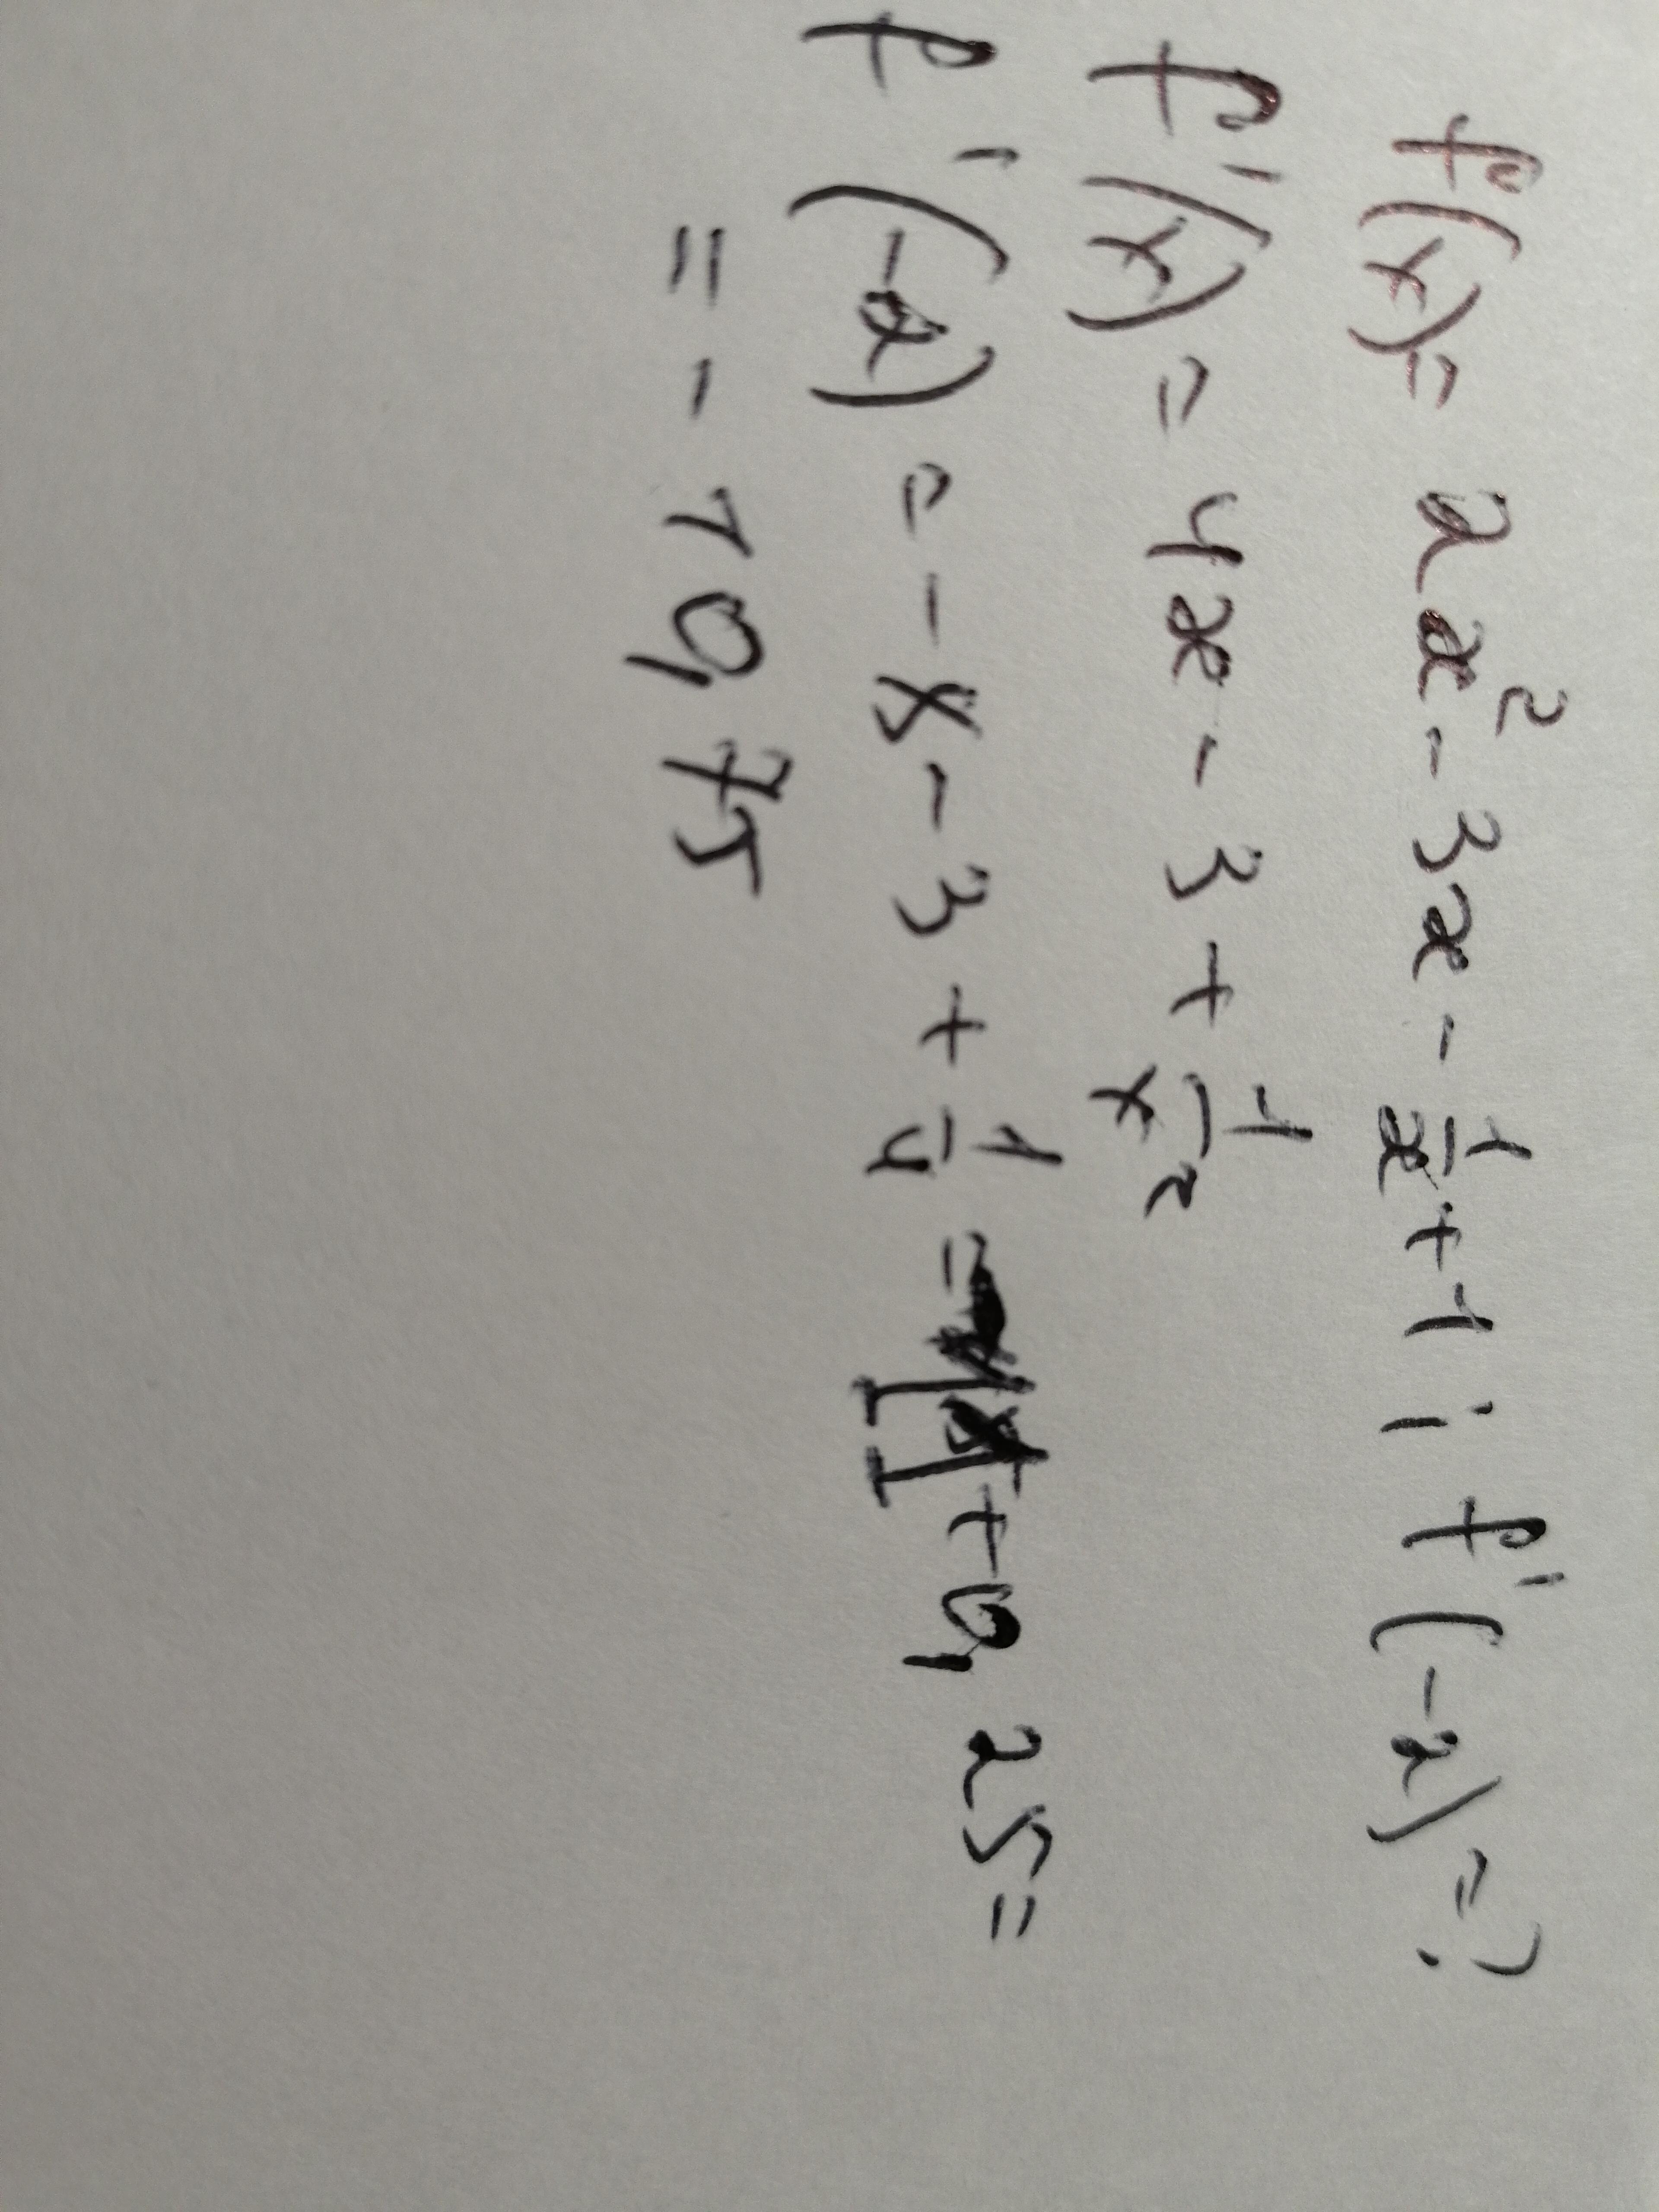 f(x) = 2x² - 3x - 1/x + 1 ; f'(-2) = ?
f'(x) = 4x - 3 + 1/x²
f'(-2) = -8 - 3 + 1/4 = + 0,25 =
= - 10,75